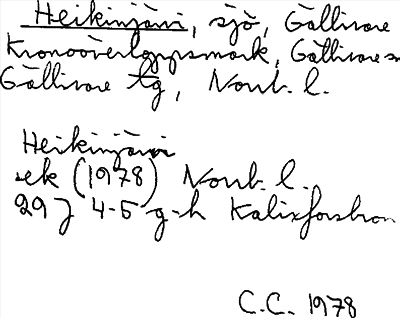 Heikinjärvi, sjö, Gällivare
Kronoöverloppsmark, Gällivare s
Gällivare tg, Norrb. l.
Heikinjärvi
ek (1978) Norrb. l.
29J 4-5 g-h Kalixforsbron
C.C. 1978